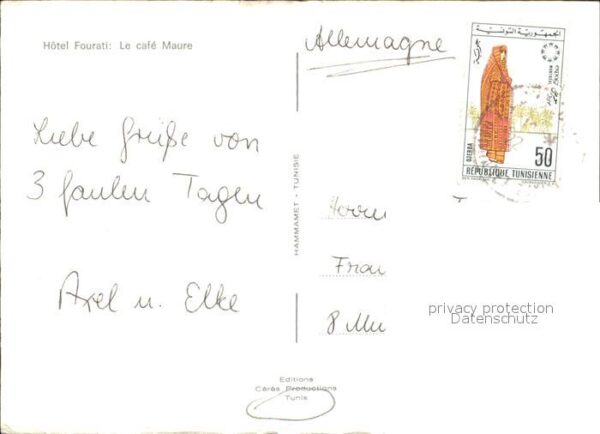 Hôtel Fourati: Le café Maure
Liebe Grüße von
3 faulen Tagen
Axel u. Elke
HAMMAMET - TUNISIE
Editions
Cérès Productions
Tunis
Allemagne
الجمهورية التونسية
DJERBA
50
REPUBLIQUE TUNISIENNE
Herrn
Frau
8 Mu
privacy protection
Datenschutz